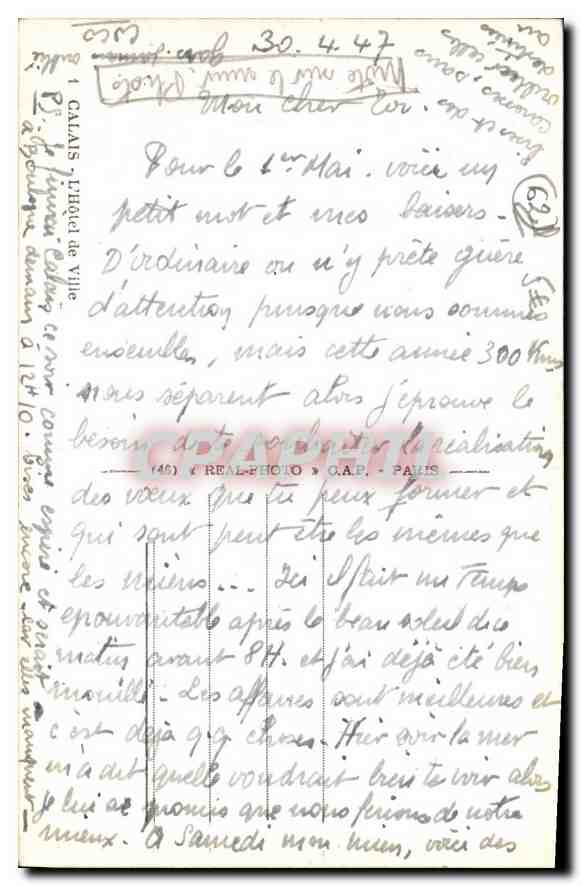 30.4.47
note sur le
Mon cher
Pour le 1er Mai. voici un
petit mot et mes baisers.
D'ordinaire on n'y prête guère
d'attention puisque nous sommes
ensembles, mais cette année 300 Kms
nous séparent alors j'éprouve le
besoin de te souhaiter la réalisation
des voeux que tu peux former et
qui sont peut être les mêmes que
les miens... Ici il fait un Temps
epouvantable après le beau soleil du
matin avant 8H. et j'ai déjà été bien
mouillé. Les affaires sont meilleures et
c'est déjà q.q. choses. Hier soir la mer
m'a dit quelle voudrait bien te voir alors
je lui ai promis que nous ferions de notre
mieux. A Samedi mon, voici des
bises et des
sans
oublier celles
PS. Calais ce soir comme espéré et serait
a Boulogne demain à 12H10. bises encore car elles manquent
1 CALAIS - L'Hôtel de Ville
(46) « REAL-PHOTO » C.A.P. - PARIS
(62)
5E
CPAPHIL